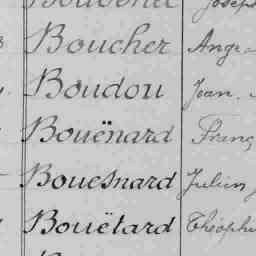 Boucher Ange
Boudou Jean
Bouënard Franç
Bouesnard Julien
Bouëtard Théophi